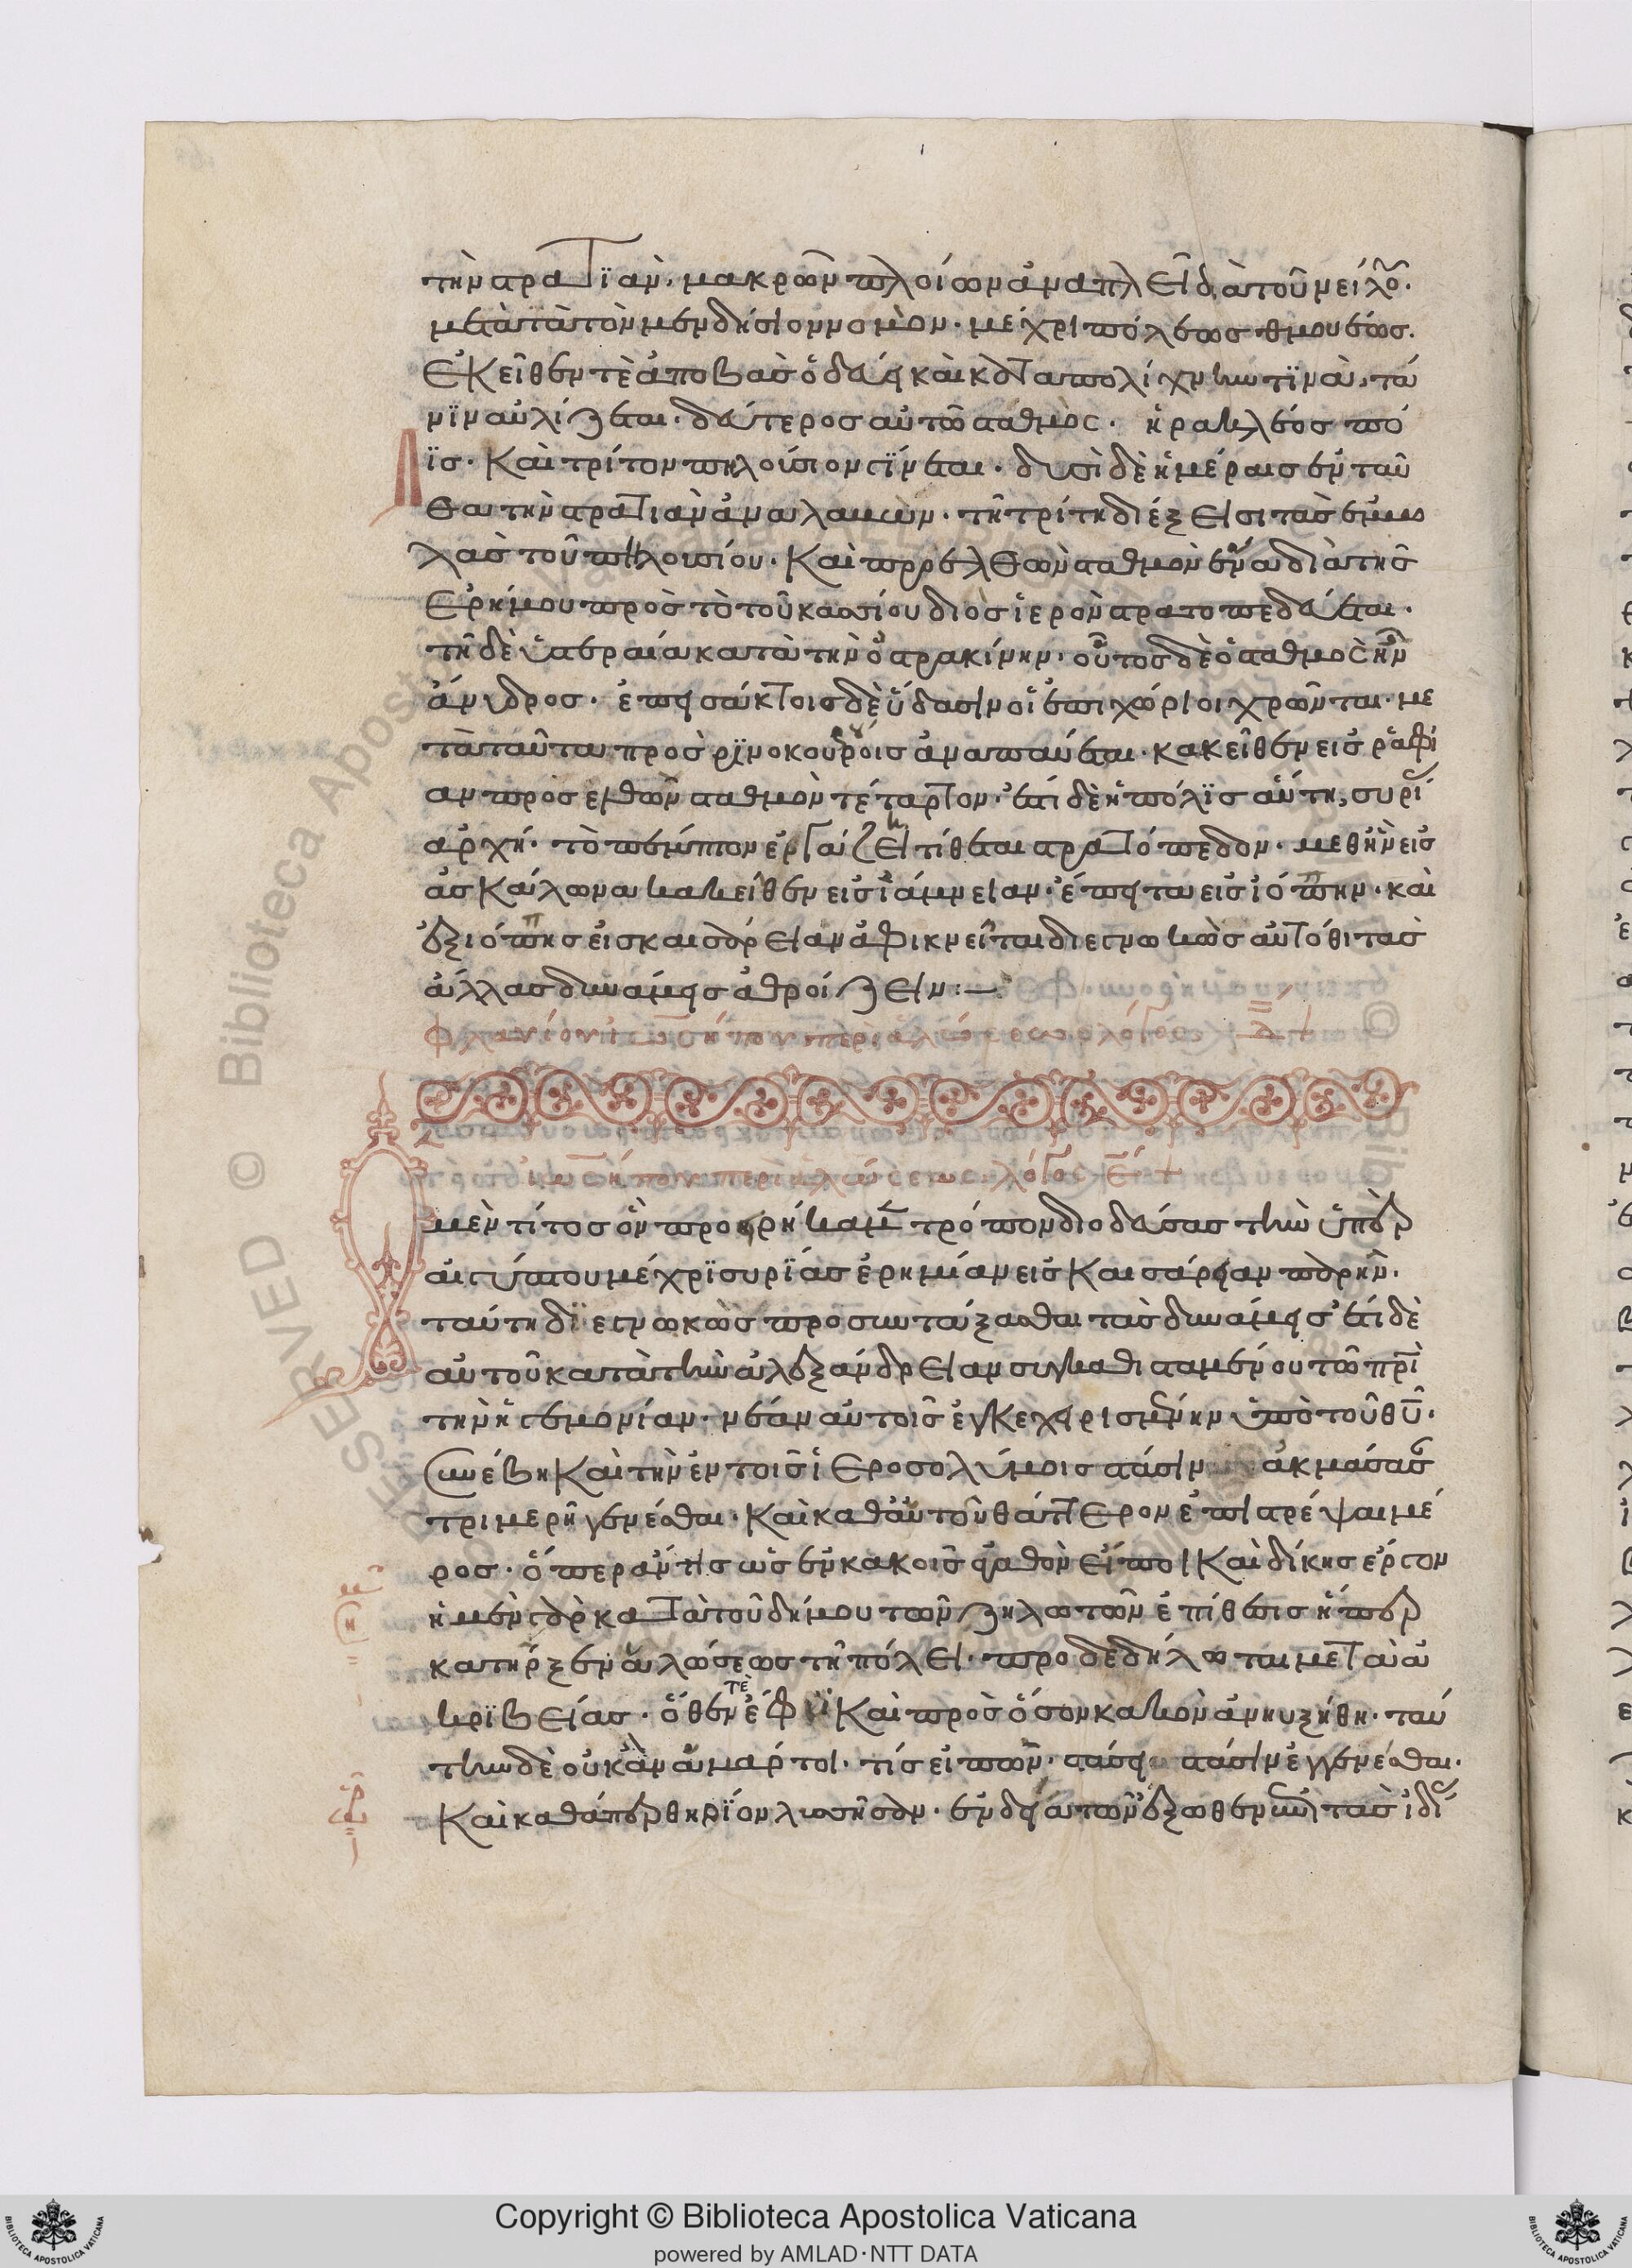 τὴν στρατϊὰν. μακρῶν πλοίων ἀναπλεῖ διὰ τοῦ νείλου.
μετὰ τὰ τὸν μενδήσιον νομὸν. μέχρι πόλεως θμούεως.
ἐκεῖθεν τὲ ἀποβὰς ὁδεύει καὶ κατὰ πολίχνην τϊνὰ, τά
νϊν αὐλίζεται. δεύτερος αὐτῶ σταθμὸς. ἡρακλέος πό
λϊς. καὶ τρίτον πηλούσιον γΐνεται. δυσὶ δὲ ἡμέραις ἐνταῦ
θα τὴν στρατιὰν ἀναλαμὼν. τῆ τρίτη διέξεισι τὰς ἐμβο
λὰς τοῦ πηλουσίου. καὶ προελθὼν σταθμὸν ἕνα διὰ τῆς
ἐρήμου πρὸς τὸ τοῦ κασίου διὸς ἱερὸν στρατοπεδεύεται.
τῆ δὲ ὑστεραία κατὰ τὴν ὀστρακίνην. οὗτος δὲ ὁ σταθμὸς ἦν
ἄνυδρος. ἐπεισάκτοις δὲ ὕδασιν οἱ ἐπιχώριοι χρῶνται. με
τὰ ταῦτα πρὸς ρϊνοκουρούροις ἀναπαύεται. κακεῖθεν εἰς ῥαφί
αν προσελθὼν σταθμὸν τέταρτον. ἔστι δὲ ἡ πόλϊς αὕτη, συρί
ἀρχή. τὸ πέμπτον ἐν γάζη τίθεται στρατόπεδον. μεθ᾽ ἣν εἰς
ἀσκάλωνα κακεῖθεν εἰς ἰάμνειαν. ἔπειτα εἰς ἰόππην. καὶ
ἐξ ἰόππης εἰς καισάρειαν ἀφικνεῖται διεγνωκὼς αὐτόθι τὰς
ἄλλας δυνάμεις ἀθροίζειν:—
φλαυίου ἰωσήπου περὶ ἁλώσεως λόγος Δ +
ἰωσήπου περὶ ἁλώσεως λόγος Ε +
Ὁ μὲν τίτος ὃν προειρήκαμεν τρόπον διοδεύσας τὴν ὑπὲρ
αἰγύπτου μέχρϊ συρϊάς ἐρημίαν εἰς καισάρειαν παρῆν.
ταύτη δϊεγνωκὼς προσυντάξασθαι τὰς δυνάμεις ἔτι δὲ
αὐτοῦ κατὰ τὴν ἀλεξάνδρειαν συγκαθισταμένου τῶ πατρὶ
τὴν ἡγεμονίαν. νέαν αὐτοῖς ἐγκεχειρισμένην ὑπὸ τοῦ θυ.
συνέβη καὶ τὴν ἐν τοῖς ἱεροσολύμοις στάσιν ἀκμάσασαν
τριμερῆ γενέσθαι. καὶ καθ᾽ αὑτοῦ θάτερον ἐπιστρέψαι μέ
ρος. ὅπερ ἄν τις ὡς ἐν κακοῖς ἀγαθὸν εἴποι καὶ δίκης ἔργον
ἡ μὲν γὰρ κατὰ τοῦ δήμου τῶν ζηλωτῶν ἐπίθεσις ἥπερ
κατῆρξεν ἁλώσεως τῆ πόλει. προδεδήλωται μετὰ ἀ
κρϊβείας. ὅθεν τὲ ἔφϋ καὶ πρὸς ὅσον κακὸν ἀνηυξήθη. ταύ
την δὲ οὐκ ἂν ἁμάρτοι. τὶς εἰπὼν. στάσει στάσιν ἐγγενέσθαι.
καὶ καθάπερ θηρΐον λυσσῆσαν. ἐνδείᾳ τῶν ἔξωθεν ἐπὶ τὰς ἰδίας